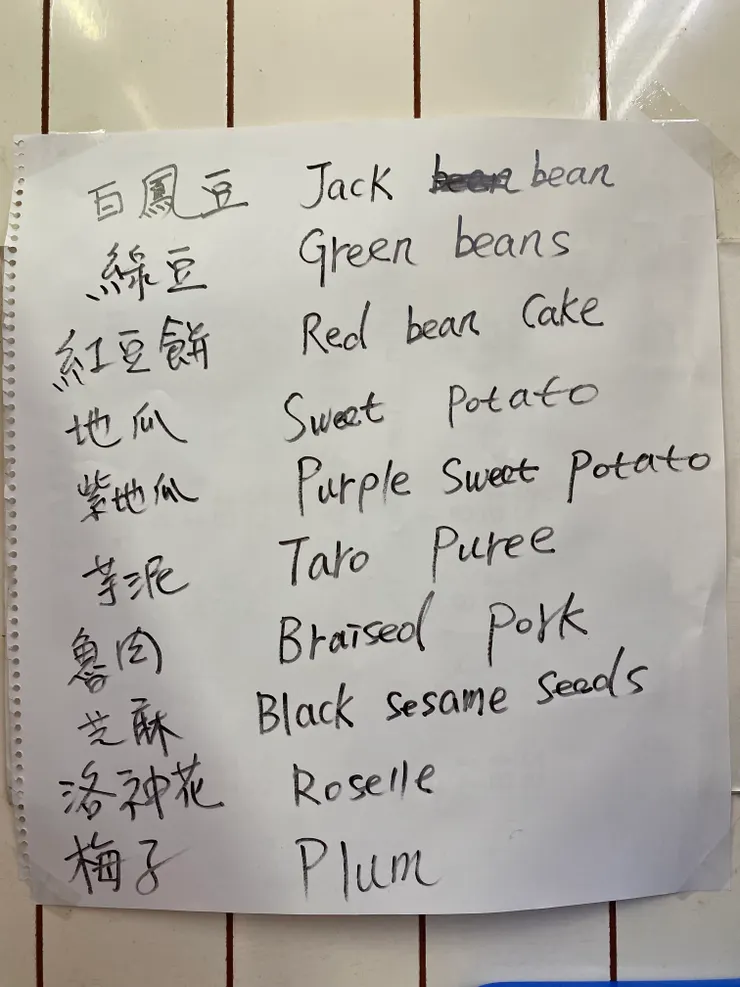 白鳳豆 Jack bean
綠豆 Green beans
紅豆餅 Red bean Cake
地瓜 Sweet Potato
紫地瓜 Purple Sweet Potato
芋泥 Taro Puree
魯肉 Braised Pork
芝麻 Black Sesame Seeds
洛神花 Roselle
梅子 Plum